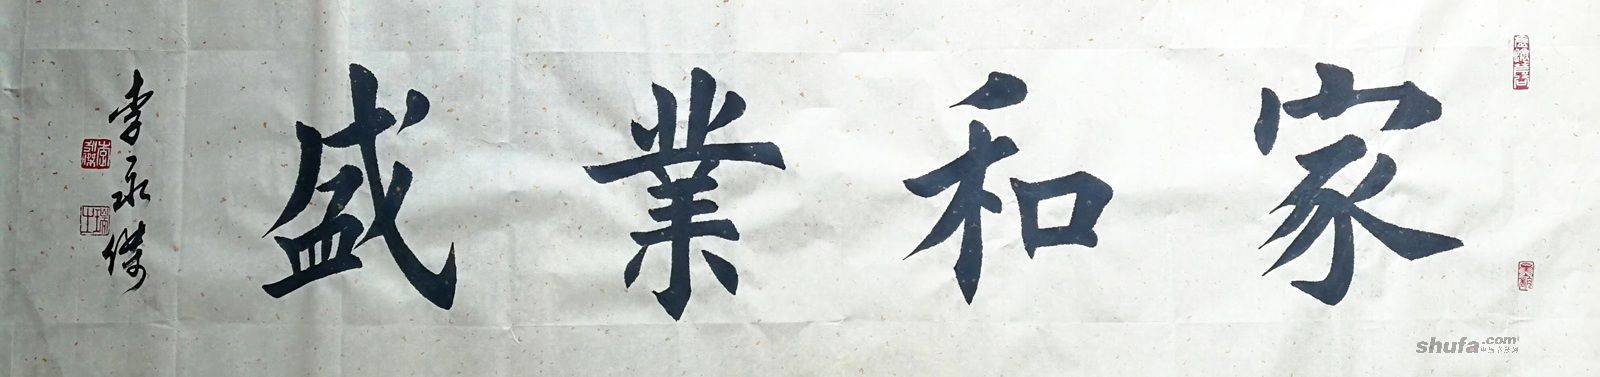 家和業盛
李永傑
shufa.com